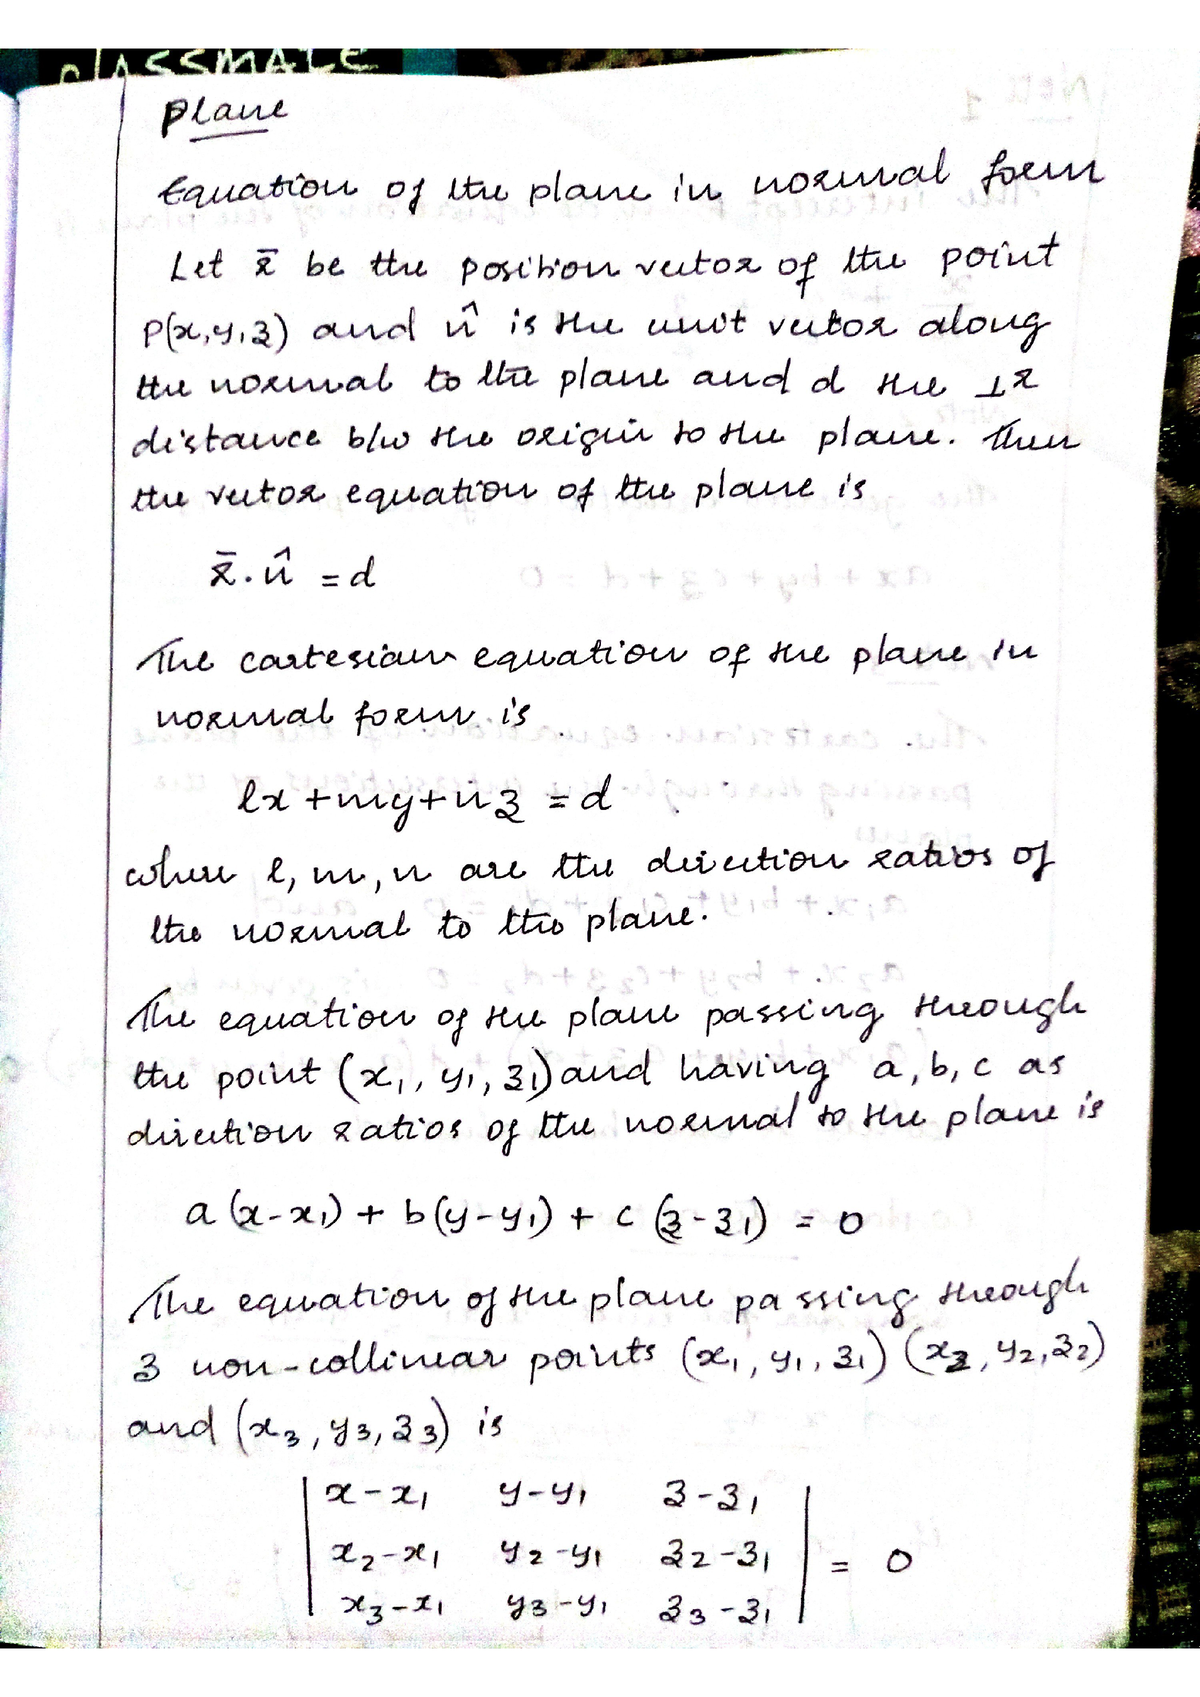 CLASSMATE
Plane
Equation of the plane in normal form
Let r̄ be the position vector of the point
P(x,y,z) and n̂ is the unit vector along
the normal to the plane and d the ⊥r
distance b/w the origin to the plane. Then
the vector equation of the plane is
r̄.n̂ = d
The cartesian equation of the plane in
normal form is
lx + my + nz = d
where l, m, n are the direction ratios of
the normal to the plane.
The equation of the plane passing through
the point (x₁, y₁, z₁) and having a, b, c as
direction ratios of the normal to the plane is
a(x-x₁) + b(y-y₁) + c(z-z₁) = 0
The equation of the plane passing through
3 non-collinear points (x₁, y₁, z₁) (x₂, y₂, z₂)
and (x₃, y₃, z₃) is
| x-x₁ y-y₁ z-z₁ |
| x₂-x₁ y₂-y₁ z₂-z₁ | = 0
| x₃-x₁ y₃-y₁ z₃-z₁ |